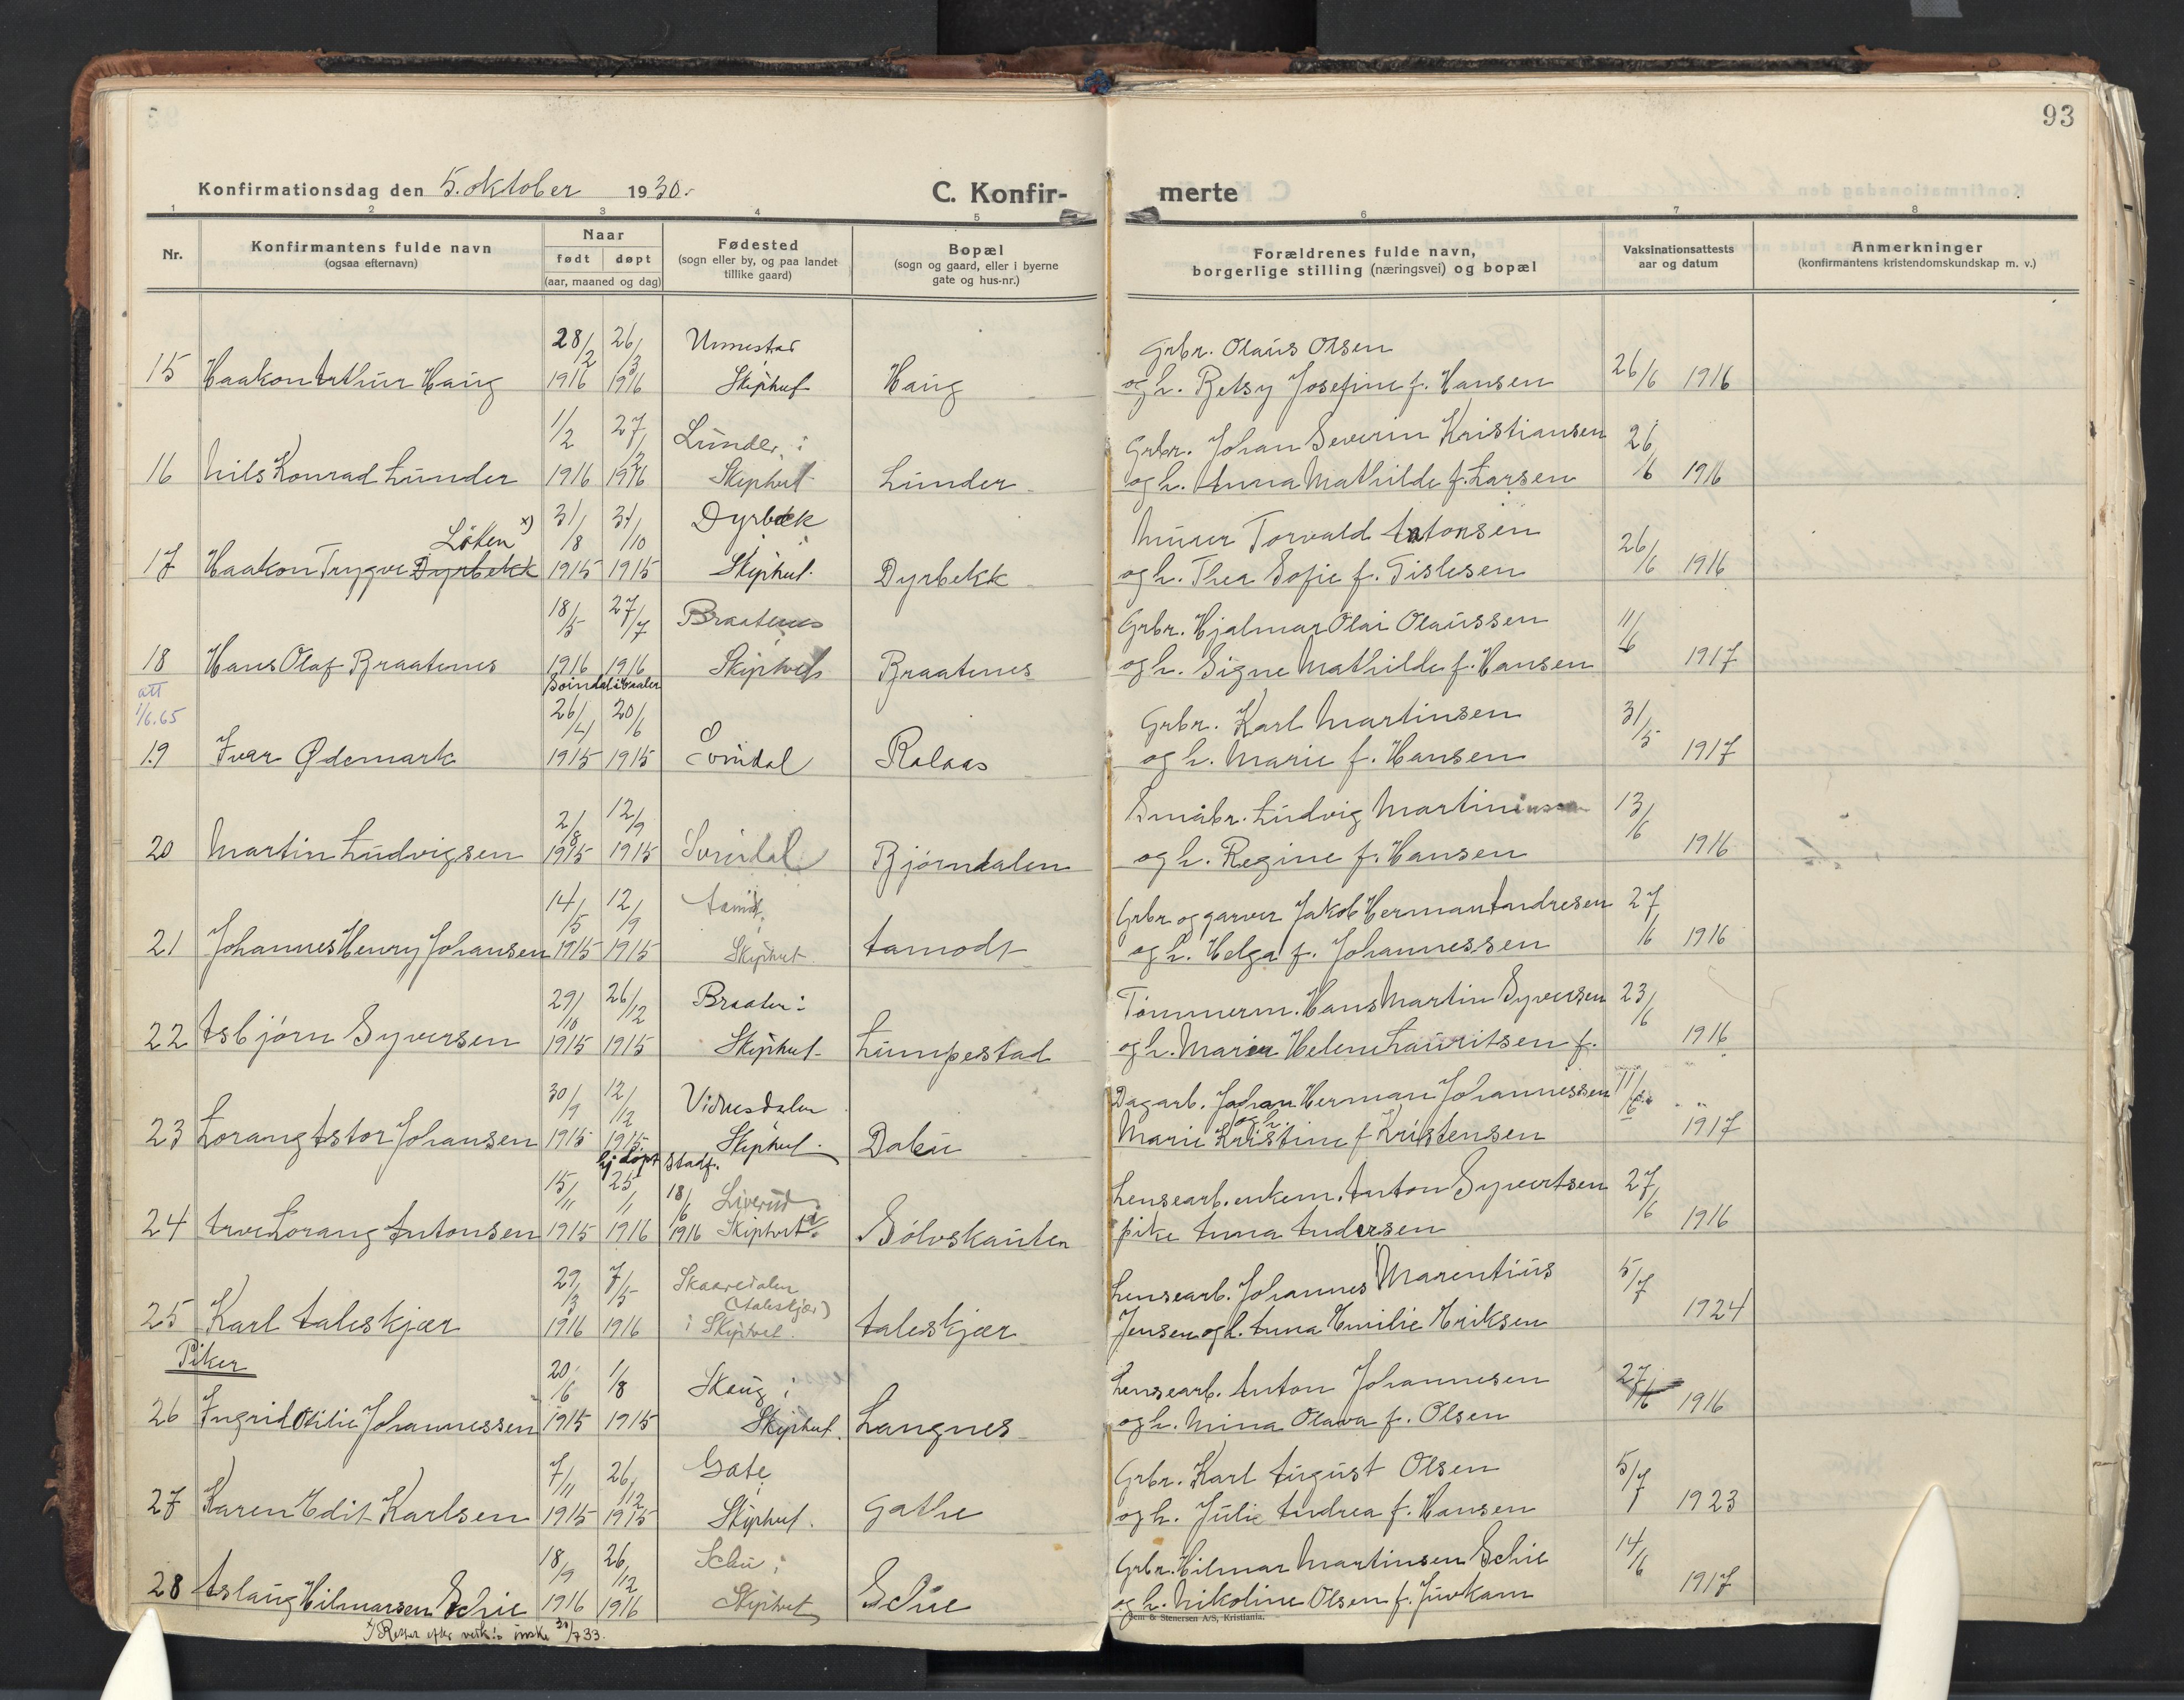 93
Konfirmationsdag den 5. oktober 1930.
C. Konfir-
merte
1 2 3 4 5 6 7 8
Nr.
Konfirmantens fulde navn
(ogsaa efternavn)
Naar
født døpt
(aar, maaned og dag)
Fødested
(sogn eller by, og paa landet
tillike gaard)
Bopæl
(sogn og gaard, eller i byerne
gate og hus-nr.)
Forældrenes fulde navn,
borgerlige stilling (næringsvei) og bopæl
Vaksinationsattests
aar og datum
Anmerkninger
(konfirmantens kristendomskundskap m. v.)
28/2 26/3 Unnestad Grbr. Olaus Olsen
15 Haakon Arthur Haug 1916 1916 Skiphvet Haug og h. Betsy Josefine f. Hansen 26/6 1916
1/2 27/12 Lunder i Grbr. Johan Severin Kristiansen
16 Nils Konrad Lunder 1916 1916 Skiphvet Lunder og h. Anna Mathilde f. Larsen 26/6 1916
Löken x) 31/8 31/10 Dyrbæk Murer Torvald Antonsen
17 Haakon Trygve Dyrbekk 1915 1915 Skiphvet Dyrbekk og h. Thea Sofie f. Gislesen 26/6 1916
18/5 27/7 Braatenes Grbr. Hjalmar Olai Olaussen
18 Hans Olaf Braatenes 1916 1916 Skiphvet Braatenes og h. Signe Mathilde f. Hansen 11/6 1917
att
1/6.65
Svindal i Vaaler
26/4 20/6 Grbr. Karl Martinsen
19 Ivar Ødemark 1915 1915 Svindal Ralaas og h. Marie f. Hansen 31/5 1917
2/8 12/9 Småbr. Ludvig Martiniussen
20 Martin Ludvigsen 1915 1915 Svindal Bjørndalen og h. Regine f. Hansen 13/6 1916
14/5 12/9 Grbr og garver Jakob Herman Andresen
21 Johannes Henry Johansen 1915 1915 Skiphvet Aamodt og h. Helga f. Johannessen 27/6 1916
29/10 26/12 Braaten i Tømmerm. Hans Martin Syversen
22 Asbjørn Syversen 1915 1915 Skiphvet Limpestad og h. Maria Helene Lauritsen f. 23/6 1916
30/9 12/12 Vidnesdalen Dagarb. Johan Herman Johannessen
23 Lorang Astor Johansen 1915 1915 Skiphvet Dalen og h. Marie Kristine f Kristensen 11/6 1917
hj. døpt stadf.
15/11 25/1 18/6 Liverud Lensearb. enkem. Anton Syvertsen
24 Arve Lorang Antonsen 1915 1916 1916 Skiphvet Sölvskauten pike Anna Andersen 27/6 1916
29/3 7/5 Skaaredalen (Aaleskjær) Lensearb. Johannes Marentius
25 Karl Aaleskjær 1916 1916 i Skiphvet. Aaleskjær Jensen og h. Anna Emilie Eriksen 5/7 1924
Piker
20/6 1/8 Skaug i Lensearb. Anton Johannesen
26 Ingrid Otilie Johannessen 1915 1915 Skiphvet. Langnes og h. Mina Olava f. Olsen 27/6 1916
7/11 26/12 Gate Grbr. Karl August Olsen
27 Karen Edit Karlsen 1915 1915 Skiphvet. Gathe og h. Julie Andrea f. Hansen 5/7 1923
18/9 26/12 Schie i Grbr. Hilmar Martinsen Schie
28 Aslaug Hilmarsen Schie 1916 1916 Skiphvet Schie og h. Nikoline Olsen f. Juvkam 14/6 1917
Sem & Stenersen A/S, Kristiania.
20/7 33.